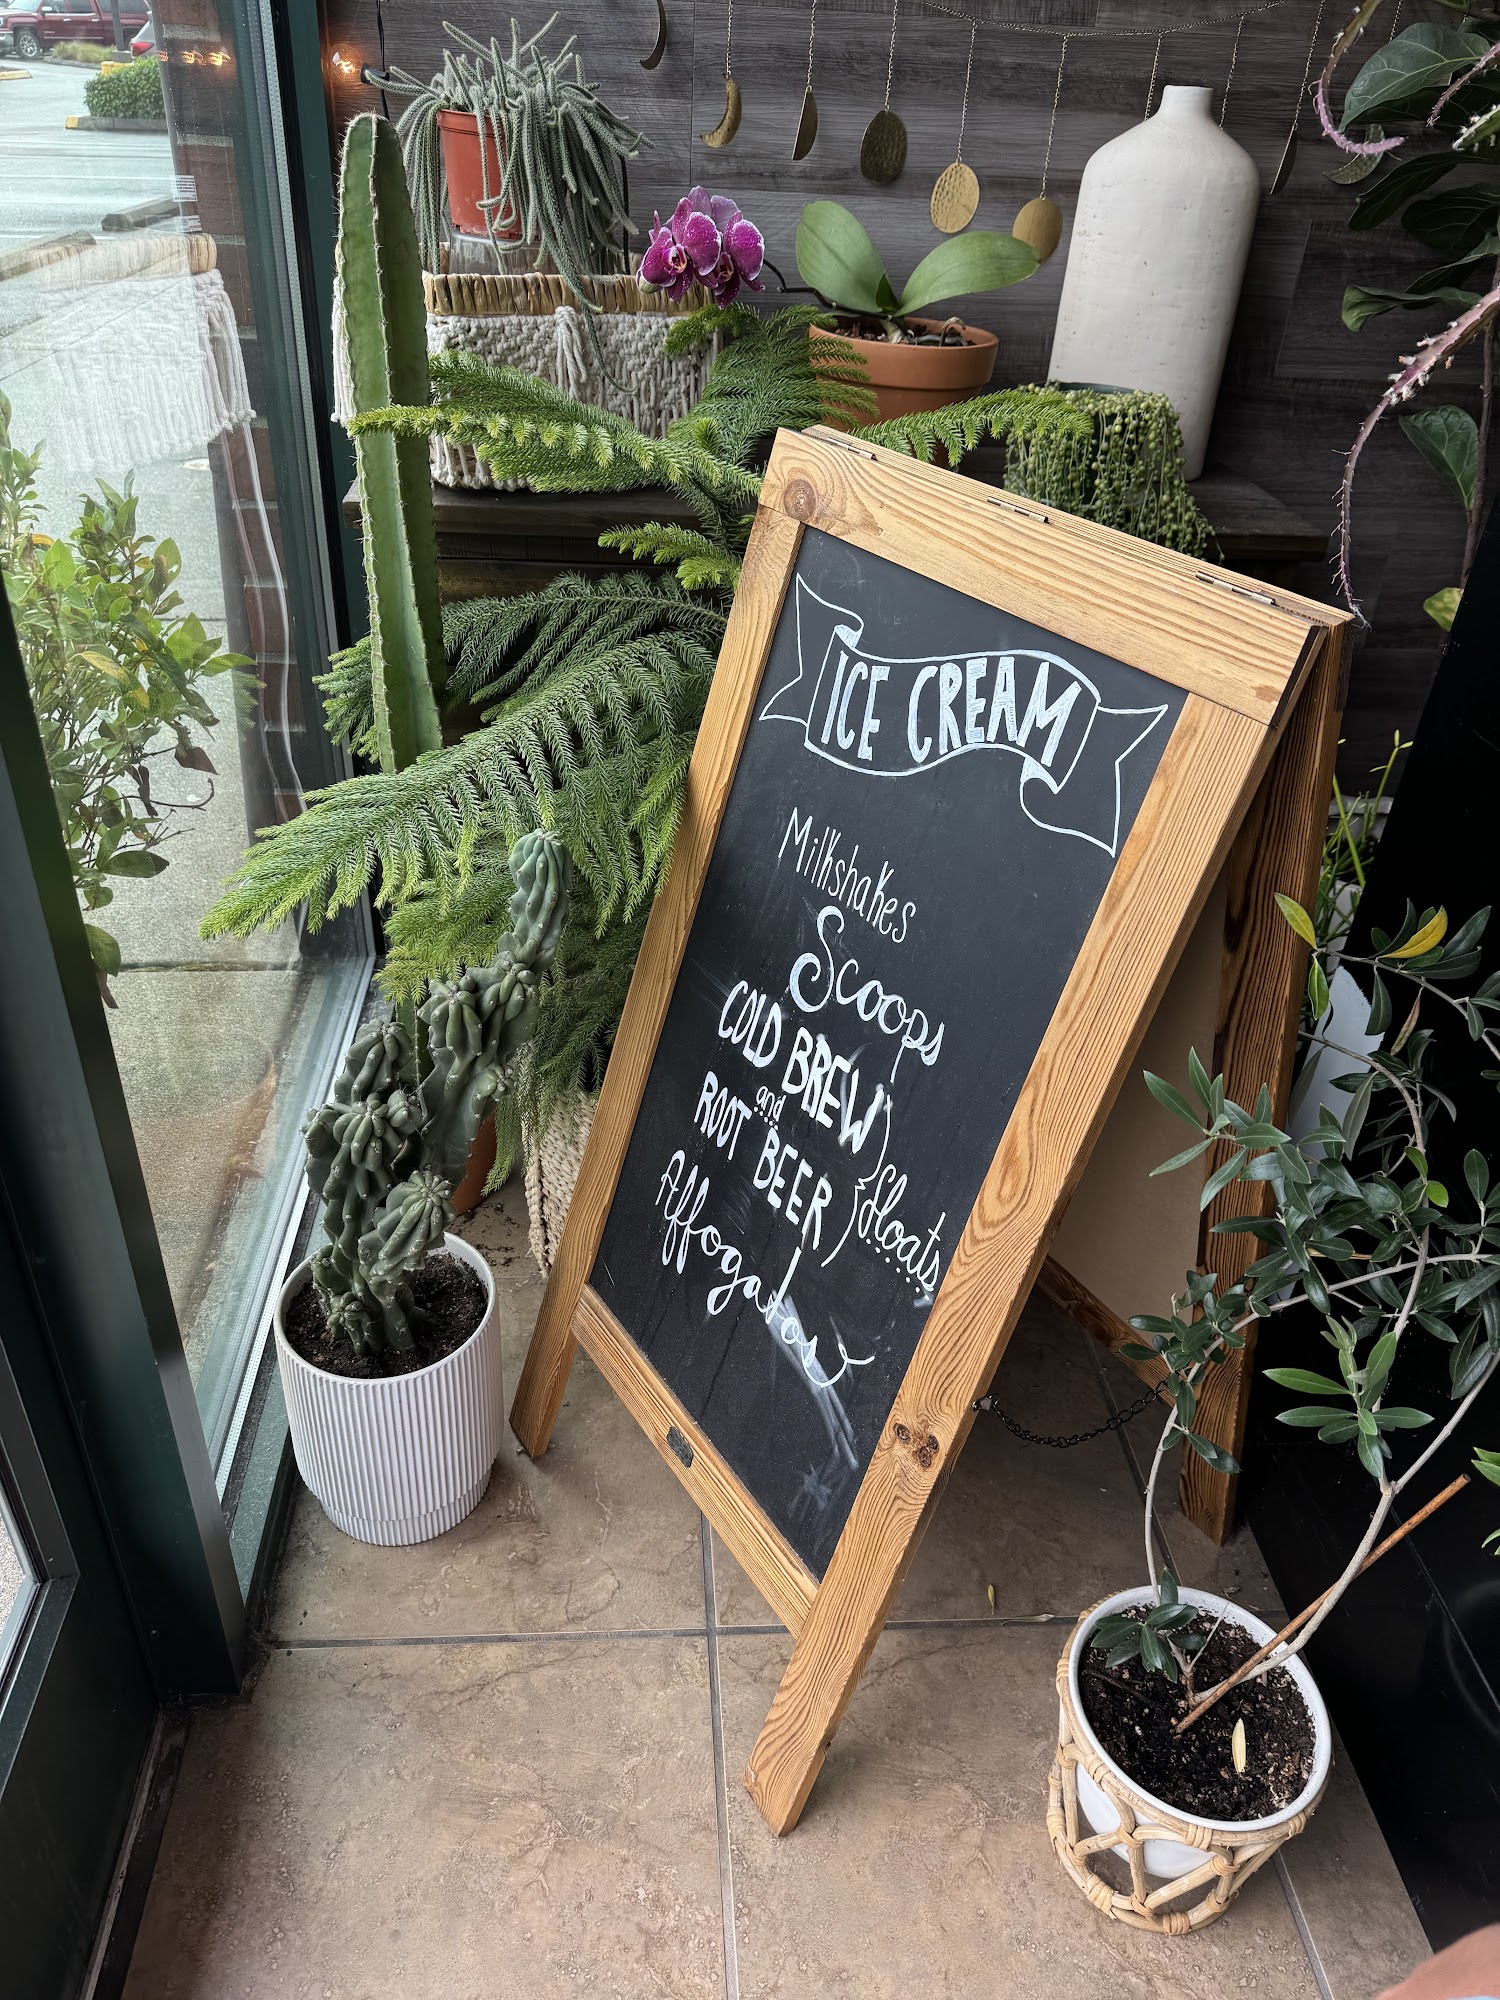 ICE CREAM
Milkshakes
Scoops
COLD BREW
and
ROOT BEER
floats
Affogatos